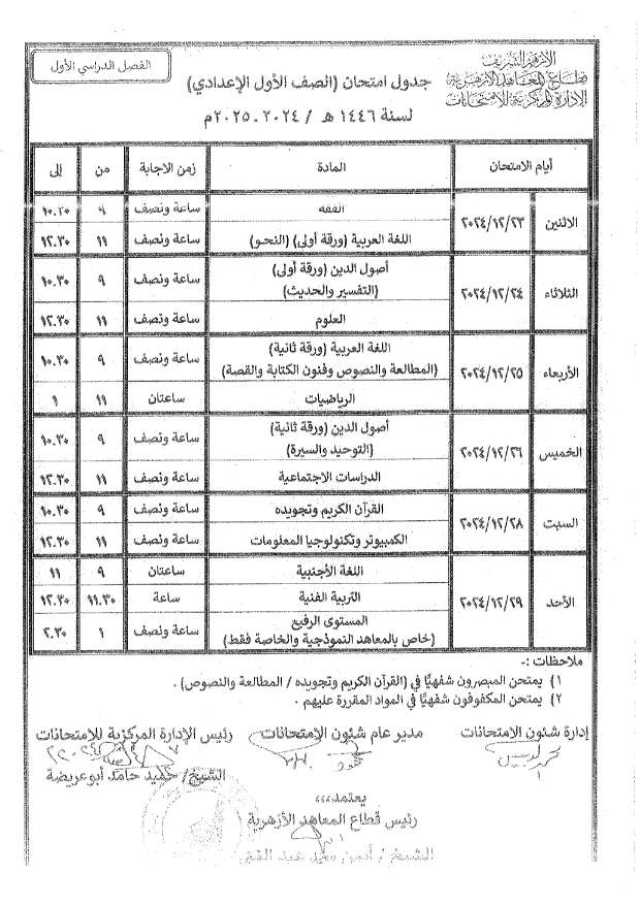 الأزهر الشريف
قطاع المعاهد الأزهرية
الإدارة المركزية للامتحانات
الفصل الدراسي الأول
جدول امتحان (الصف الأول الإعدادي)
لسنة ١٤٤٦ هـ / ٢٠٢٤ - ٢٠٢٥م
أيام الامتحان المادة زمن الاجابة من إلى
الاثنين ٢٠٢٤/١٢/٢٣ الفقه ساعة ونصف ٩ ١٠.٣٠
اللغة العربية (ورقة أولى) (النحو) ساعة ونصف ١١ ١٢.٣٠
الثلاثاء ٢٠٢٤/١٢/٢٤ أصول الدين (ورقة أولى) ساعة ونصف ٩ ١٠.٣٠
(التفسير والحديث)
العلوم ساعة ونصف ١١ ١٢.٣٠
الأربعاء ٢٠٢٤/١٢/٢٥ اللغة العربية (ورقة ثانية) ساعة ونصف ٩ ١٠.٣٠
(المطالعة والنصوص وفنون الكتابة والقصة)
الرياضيات ساعتان ١١ ١
الخميس ٢٠٢٤/١٢/٢٦ أصول الدين (ورقة ثانية) ساعة ونصف ٩ ١٠.٣٠
(التوحيد والسيرة)
الدراسات الاجتماعية ساعة ونصف ١١ ١٢.٣٠
السبت ٢٠٢٤/١٢/٢٨ القرآن الكريم وتجويده ساعة ونصف ٩ ١٠.٣٠
الكمبيوتر وتكنولوجيا المعلومات ساعة ونصف ١١ ١٢.٣٠
الأحد ٢٠٢٤/١٢/٢٩ اللغة الأجنبية ساعتان ٩ ١١
التربية الفنية ساعة ١١.٣٠ ١٢.٣٠
المستوى الرفيع ساعة ونصف ١ ٢.٣٠
(خاص بالمعاهد النموذجية والخاصة فقط)
ملاحظات :-
١) يمتحن المبصرون شفهيًا في (القرآن الكريم وتجويده / المطالعة والنصوص) .
٢) يمتحن المكفوفون شفهيًا في المواد المقررة عليهم .
إدارة شئون الامتحانات مدير عام شئون الامتحانات رئيس الإدارة المركزية للامتحانات
الشيخ/ حميد حامد أبوعريضة
يعتمد،،،
رئيس قطاع المعاهد الأزهرية
الشيخ / أيمن محمد عبد الغني